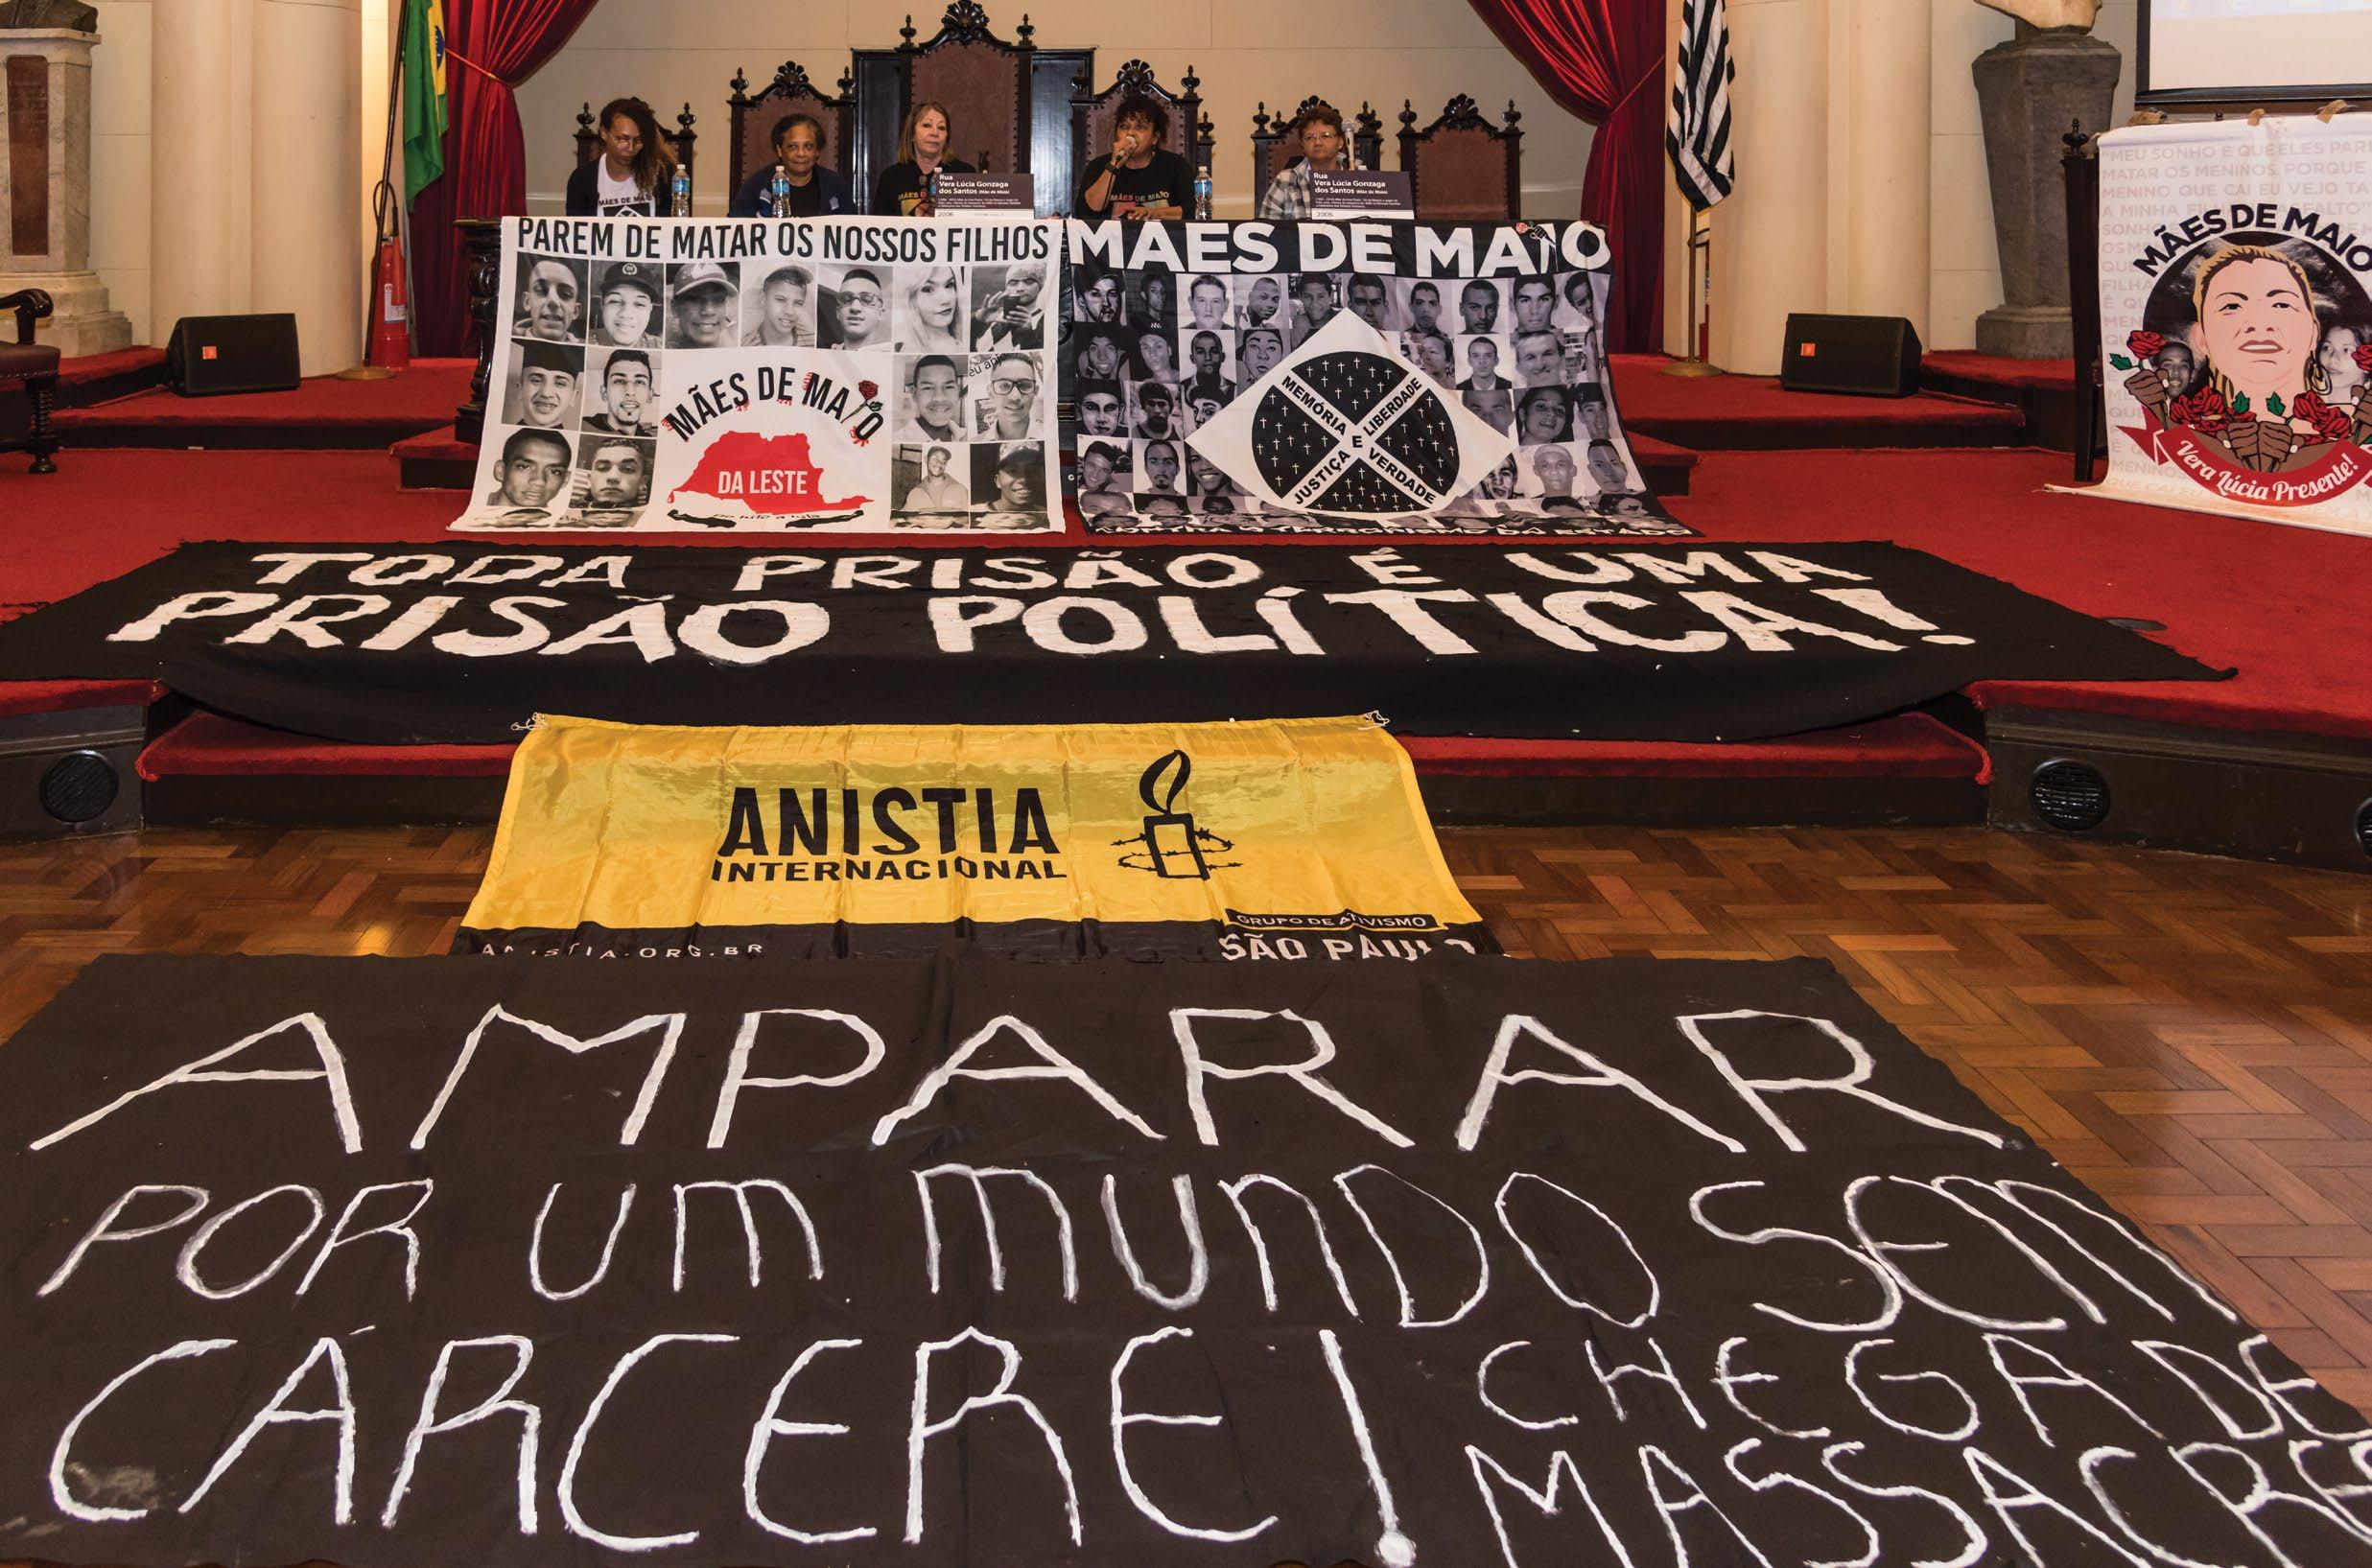 Rua
Vera Lúcia Gonzaga
dos Santos (Mãe de Maio)
2006
Rua
Vera Lúcia Gonzaga
dos Santos (Mãe de Maio)
2006
MÃES DE MAIO
MÃES DE MAIO
PAREM DE MATAR OS NOSSOS FILHOS
MÃES DE MAIO
DA LESTE
MÃES DE MAIO
MEMÓRIA E VERDADE
JUSTIÇA E LIBERDADE
CONTRA O TERRORISMO DO ESTADO
"MEU SONHO É QUE ELES PAREM
MATAR OS MENINOS. PORQUE
MENINO QUE CAI EU VEJO
A MINHA
MÃES DE MAIO
Vera Lúcia Presente!
TODA PRISÃO É UMA
PRISÃO POLÍTICA!
ANISTIA
INTERNACIONAL
GRUPO DE ATIVISMO
ANISTIA.ORG.BR
SÃO PAULO
AMPARAR
POR UM MUNDO SEM
CÁRCERE!
CHEGA DE
MASSACRES